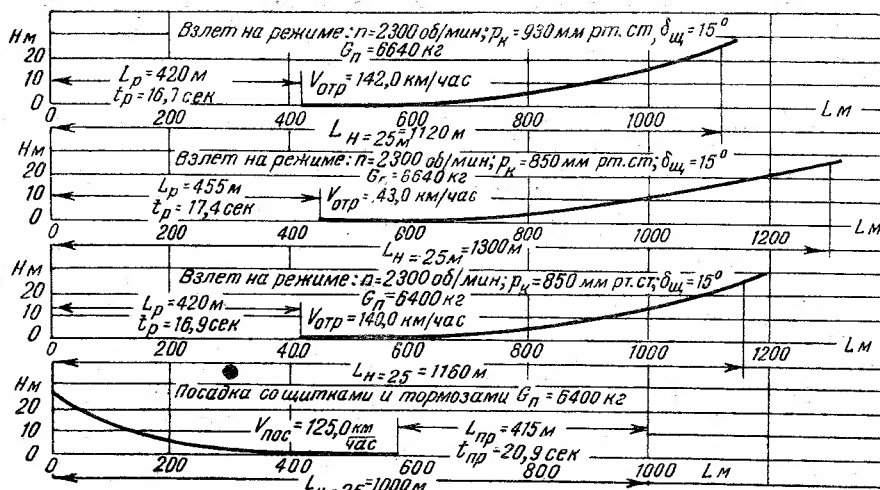 Hм
20
10
0
Взлет на режиме: n=2300 об/мин; pк=930 мм рт. ст, δщ=15°
Gп=6640 кг
Lр=420 м
tр=16,7 сек
Vотр=142,0 км/час
200 400 600 800 1000 Lм
LH=25м=1120 м
20
10
0
Взлет на режиме: n=2300 об/мин; pк=850 мм рт.ст; δщ=15°
6640 кг
Lр=455 м
tр=17,4 сек
Vотр= 43,0 км/час
0 200 400 600 800 1000 1200 Lм
LH=25м=1300м
Hм
20
10
0
Взлет на режиме: n=2300 об/мин; pк=850 мм рт.ст; δщ=15°
Gп=6400 кг
Lр=420 м
tр=16,9 сек
Vотр=140,0 км/час
0 200 400 600 800 1000 1200 Lм
LH=25=1160 м
Hм
20
10
0
Посадка со щитками и тормозами Gп=6400 кг
Vпос=125,0 км/час
Lпр=415м
tпр=20,9 сек
0 200 400 600 800 1000 Lм
LH=25=1000м